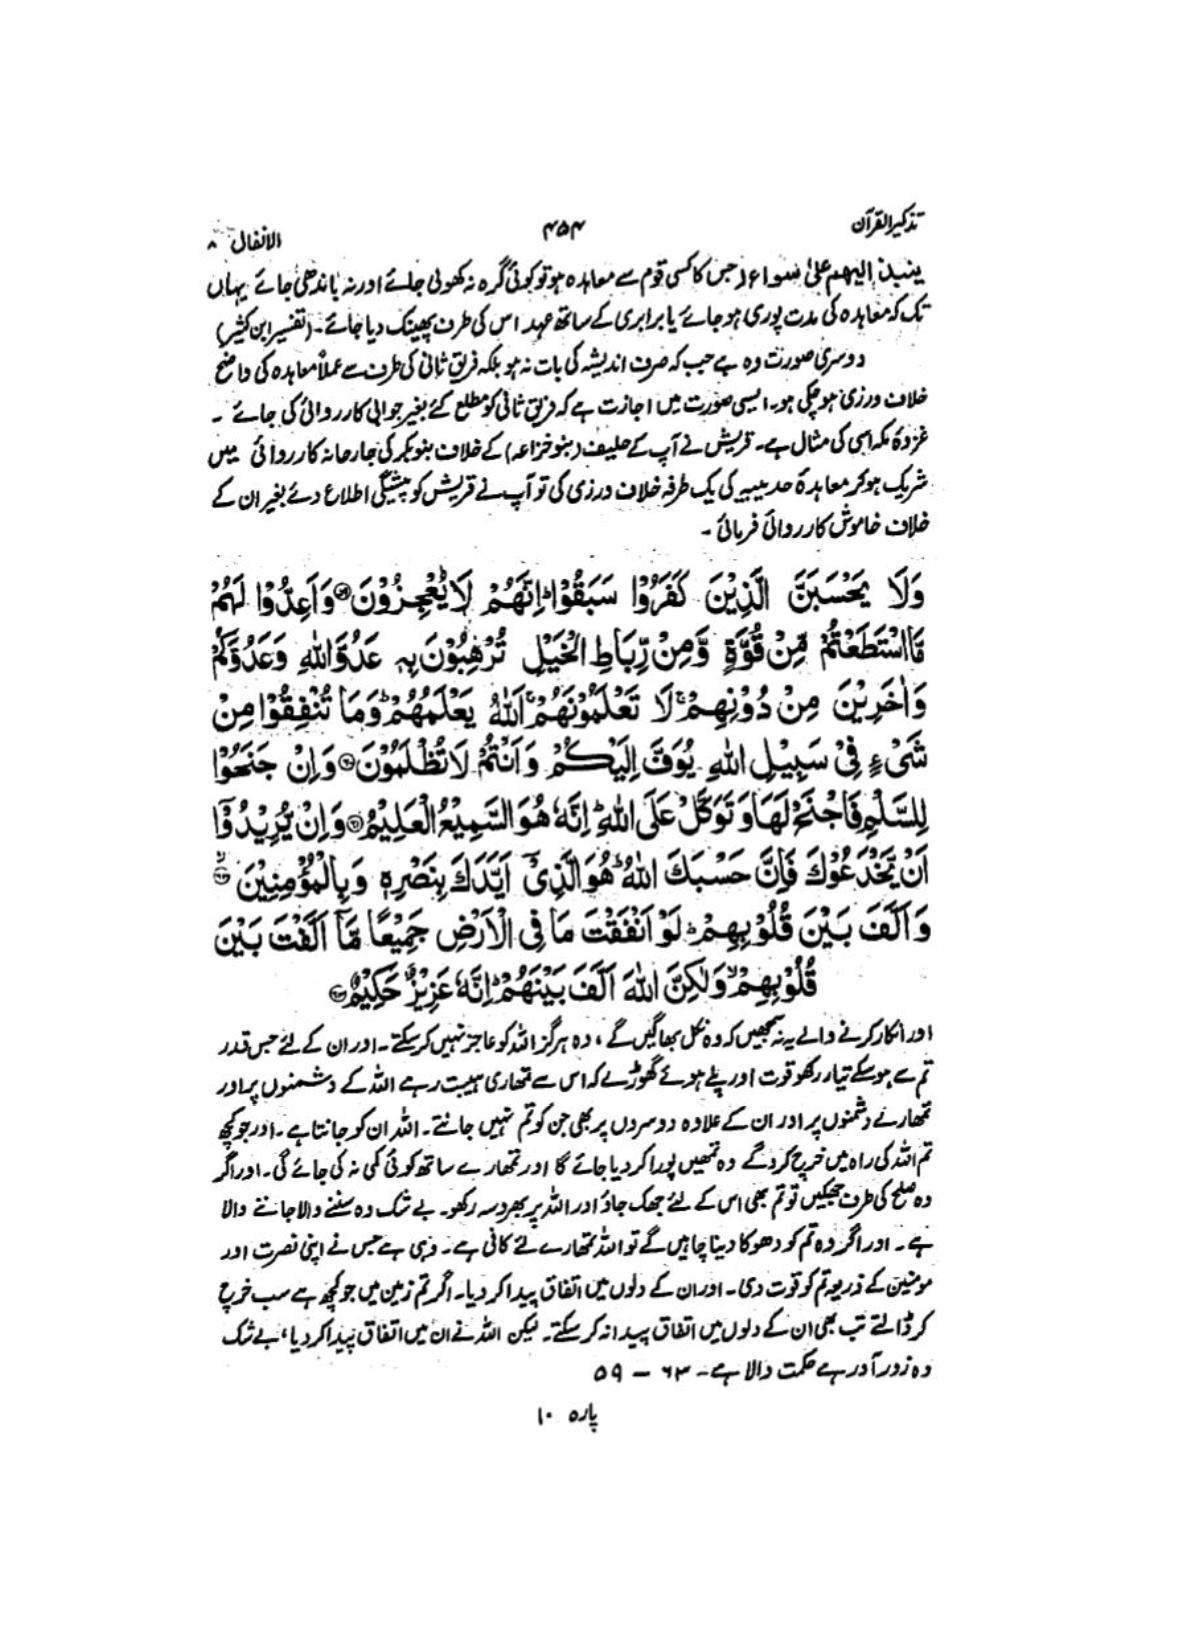 تذکیر القرآن ۴۵۴ الانفال ۸
ینبذ الیهم علیٰ سواء (جس کا کسی قوم سے معاہدہ ہو تو کوئی گرہ نہ کھولی جائے اور نہ باندھی جائے یہاں
تک کہ معاہدہ کی مدت پوری ہوجائے یا برابری کے ساتھ عہد اس کی طرف پھینک دیا جائے۔ (تفسیر ابن کثیر)
دوسری صورت وہ ہے جب کہ صرف اندیشہ کی بات نہ ہو بلکہ فریق ثانی کی طرف سے عملاً معاہدہ کی واضح
خلاف ورزی ہوچکی ہو۔ ایسی صورت میں اجازت ہے کہ فریق ثانی کو مطلع کئے بغیر جوابی کارروائی کی جائے ۔
غزوۂ مکہ اسی کی مثال ہے۔ قریش نے آپ کے حلیف (بنو خزاعہ) کے خلاف بنو بکر کی جارحانہ کارروائی میں
شریک ہوکر معاہدۂ حدیبیہ کی یک طرفہ خلاف ورزی کی تو آپ نے قریش کو پیشگی اطلاع دئے بغیر ان کے
خلاف خاموش کارروائی فرمائی ۔
وَلَا يَحْسَبَنَّ الَّذِيْنَ كَفَرُوْا سَبَقُوْا ؕ اِنَّهُمْ لَا يُعْجِزُوْنَ ﴿۵۹﴾ وَاَعِدُّوْا لَهُمْ
مَّا اسْتَطَعْتُمْ مِّنْ قُوَّةٍ وَّمِنْ رِّبَاطِ الْخَيْلِ تُرْهِبُوْنَ بِهٖ عَدُوَّ اللّٰهِ وَعَدُوَّكُمْ
وَاٰخَرِيْنَ مِنْ دُوْنِهِمْ ۚ لَا تَعْلَمُوْنَهُمْ ۚ اَللّٰهُ يَعْلَمُهُمْ ؕ وَمَا تُنْفِقُوْا مِنْ
شَيْءٍ فِيْ سَبِيْلِ اللّٰهِ يُوَفَّ اِلَيْكُمْ وَاَنْتُمْ لَا تُظْلَمُوْنَ ﴿۶۰﴾ وَاِنْ جَنَحُوْا
لِلسَّلْمِ فَاجْنَحْ لَهَا وَتَوَكَّلْ عَلَى اللّٰهِ ؕ اِنَّهٗ هُوَ السَّمِيْعُ الْعَلِيْمُ ﴿۶۱﴾ وَاِنْ يُّرِيْدُوْٓا
اَنْ يَّخْدَعُوْكَ فَاِنَّ حَسْبَكَ اللّٰهُ ؕ هُوَ الَّذِيْٓ اَيَّدَكَ بِنَصْرِهٖ وَبِالْمُؤْمِنِيْنَ ﴿۶۲﴾
وَاَلَّفَ بَيْنَ قُلُوْبِهِمْ ؕ لَوْ اَنْفَقْتَ مَا فِي الْاَرْضِ جَمِيْعًا مَّآ اَلَّفْتَ بَيْنَ
قُلُوْبِهِمْ ۙ وَلٰكِنَّ اللّٰهَ اَلَّفَ بَيْنَهُمْ ؕ اِنَّهٗ عَزِيْزٌ حَكِيْمٌ ﴿۶۳﴾
اور انکار کرنے والے یہ نہ سمجھیں کہ وہ نکل بھاگیں گے ، وہ ہرگز اللہ کو عاجز نہیں کرسکتے۔ اور ان کے لئے جس قدر
تم سے ہوسکے تیار رکھو قوت اور پلے ہوئے گھوڑے کہ اس سے تمھاری ہیبت رہے اللہ کے دشمنوں پر اور
تمھارے دشمنوں پر اور ان کے علاوہ دوسروں پر بھی جن کو تم نہیں جانتے۔ اللہ ان کو جانتا ہے۔ اور جو کچھ
تم اللہ کی راہ میں خرچ کروگے وہ تمھیں پورا کردیا جائے گا اور تمھارے ساتھ کوئی کمی نہ کی جائے گی۔ اور اگر
وہ صلح کی طرف جھکیں تو تم بھی اس کے لئے جھک جاؤ اور اللہ پر بھروسہ رکھو۔ بے شک وہ سننے والا جاننے والا
ہے۔ اور اگر وہ تم کو دھوکا دینا چاہیں گے تو اللہ تمھارے لئے کافی ہے۔ وہی ہے جس نے اپنی نصرت اور
مومنین کے ذریعہ تم کو قوت دی۔ اور ان کے دلوں میں اتفاق پیدا کردیا۔ اگر تم زمین میں جو کچھ ہے سب خرچ
کر ڈالتے تب بھی ان کے دلوں میں اتفاق پیدا نہ کرسکتے۔ لیکن اللہ نے ان میں اتفاق پیدا کردیا، بے شک
وہ زور آور ہے حکمت والا ہے۔ ۶۳ – ۵۹
پارہ ۱۰